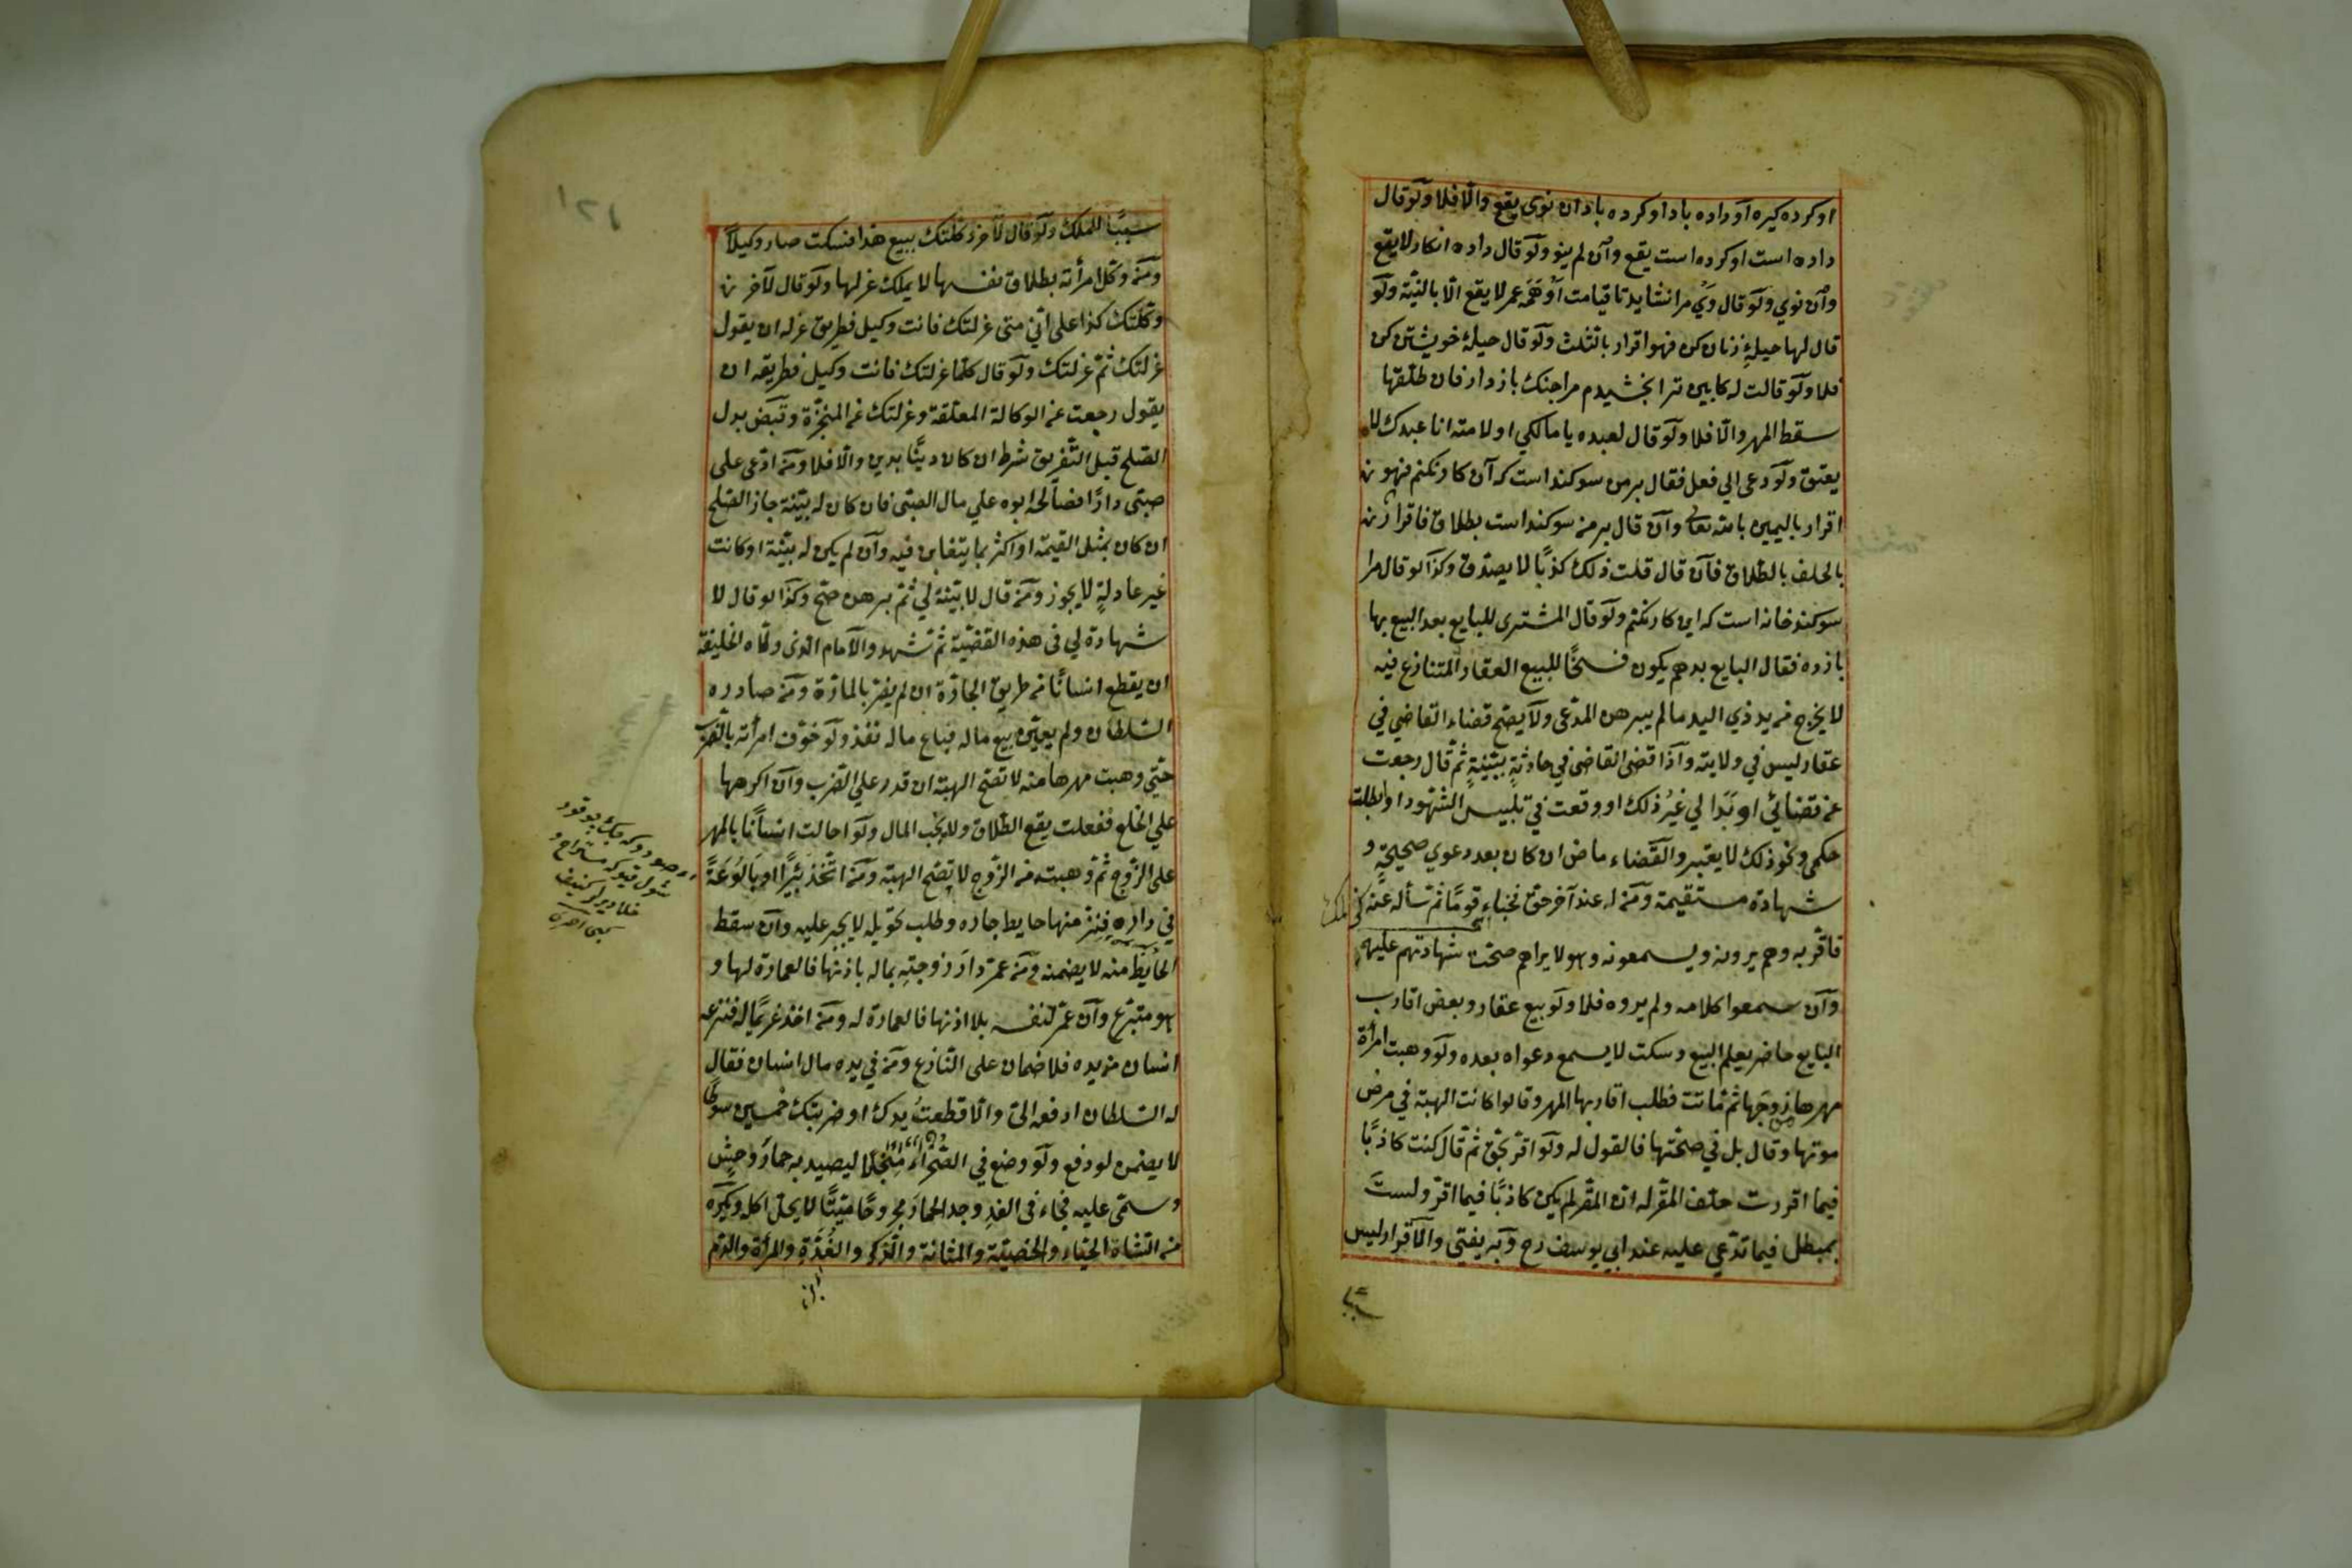 او كرده كيره او داده باد او كرده باد ان نوى يقع والا فلا ولو قال
داده است او كرده است يقع وان لم ينو ولو قال داده انكار لا يقع
وان نوي ولو قال وي مرا نشايد تا قيامت او همه عمر لا يقع الا بالنية ولو
قال لها حيلة زنان كن فهو اقرار بالثلث ولو قال حيلة خويشتن كن
فلا ولو قالت له كابين ترا بخشيدم مرا چنك باز دار فان طلقها
سقط المهر والا فلا ولو قال لعبده يا مالكي او لامته انا عبدك لا
يعتق ولو دعى الي فعل فقال بر من سوكند است كه آن كار نكنم فهو
اقرار باليمين بالله تعالى وان قال بر من سوكند است بطلاق فاقرار
بالحلف بالطلاق فان قال قلت ذلك كذبا لا يصدق وكذا لو قال مرا
سوكند خانه است كه اين كار نكنم ولو قال المشترى للبايع بعد البيع بها
باز ده فقال البايع بدهم يكون فسخا للبيع العقار المتنازع فيه
لا يخرج من يد ذي اليد ما لم يبرهن المدعى ولا يصح قضاء القاضي في
عقار ليس في ولايته واذا قضى القاضى في حادثة ببينة ثم قال رجعت
عن قضائي او بدا لي غير ذلك او وقعت في تلبيس الشهود او ابطلت
حكمى ونحو ذلك لا يعتبر والقضاء ماض ان كان بعد دعوي صحيحة و
شهادة مستقيمة ومن له عند آخر حق فخباء قوما ثم سأله عنه
فاقر به وهم يرونه ويسمعونه وهو لا يراهم صحت شهادتهم عليه
وان سمعوا كلامه ولم يروه فلا ولو بيع عقار وبعض اقارب
البايع حاضر يعلم البيع وسكت لا يسمع دعواه بعده ولو وهبت امرأة
مهرها زوجها ثم ماتت فطلب اقاربها المهر وقالوا كانت الهبة في مرض
موتها وقال بل في صحتها فالقول له ولو اقر بحق ثم قال كنت كاذبا
فيما اقررت حلف المقر له ان المقر لم يكن كاذبا فيما اقر ولست
بمبطل فيما تدعي عليه عند ابي يوسف رح وبه يفتى والاقرار ليس
سببا
١٢١
سببا للملك ولو قال لآخر وكلتك ببيع هذا فسكت صار وكيلا
ومن وكل امرأته بطلاق نفسها لا يملك عزلها ولو قال لآخر
وكلتك كذا على اني متى عزلتك فانت وكيل فطريق عزله ان يقول
عزلتك ثم عزلتك ولو قال كلما عزلتك فانت وكيل فطريقه ان
يقول رجعت عن الوكالة المعلقة وعزلتك عن المنجزة وقبض بدل
الصلح قبل التفريق شرط ان كان دينا بدين والا فلا ومن ادعى على
صبى دارا فصالحه ابوه علي مال الصبى فان كان له بينة جاز الصلح
ان كان بمثل القيمة او اكثر بما يتغابن فيه وان لم يكن له بينة او كانت
غير عادلة لا يجوز ومن قال لا بينة لي ثم برهن صح وكذا لو قال لا
شهادة لي فى هذه القضية ثم شهد والامام الذى ولاه الخليفة
ان يقطع انسانا من طريق الجادة ان لم يضر بالمارة ومن صادره
السلطان ولم يعين بيع ماله فباع ماله نفذ ولو خوف امرأته بالضرب
حتي وهبت مهرها منه لا تصح الهبة ان قدر علي الضرب وان اكرهها
علي الخلع ففعلت يقع الطلاق ولا يجب المال ولو احالت انسانا بالمهر
على الزوج ثم وهبت من الزوج لا تصح الهبة ومن اتخذ بئرا او بالوعة
في داره فنز منها حايط جاره وطلب تحويله لا يجبر عليه وان سقط
الحائط منه لا يضمنه ومن عمر دار زوجته بماله باذنها فالعمارة لها و
هو متبرع وان عمر لنفسه بلا اذنها فالعمارة له ومن اخذ غريما له فنزعه
انسان من يده فلا ضمان على النازع ومن في يده مال انسان فقال
له السلطان ادفعه الى والا قطعت يدك او ضربتك خمسين سوطا
لا يضمن لو دفع ولو وضع في الصحراء منجلا ليصيد به حمار وحش
وسمى عليه فجاء فى الغد ووجد الحمار مجروحا ميتا لا يحل اكله ويكره
من الشاة الحياء والخصية والمثانة والذكر والغدة والمرأة والدم